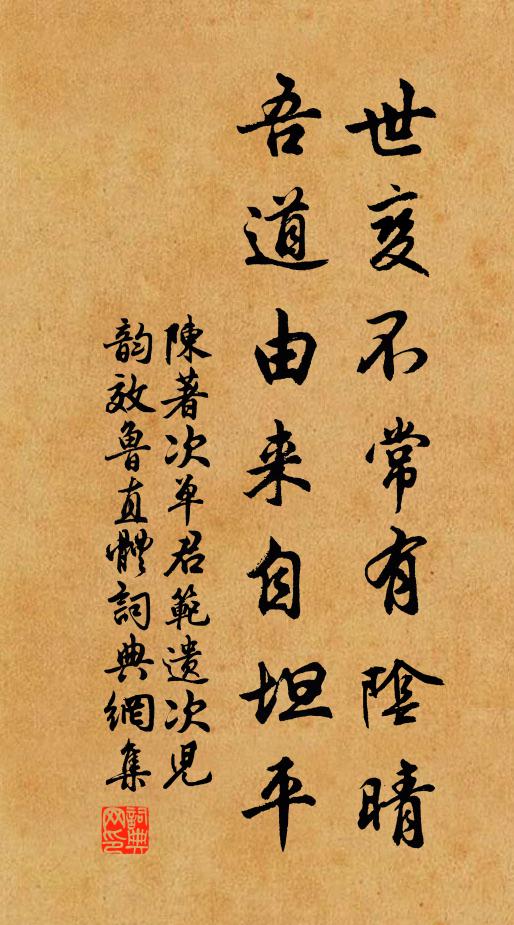 世变不常有陰晴
吾道由来自坦平
陳著次单君範遺次児
韵效魯直體詞典網集
詞典网印